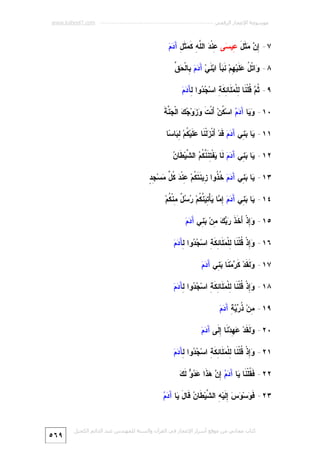 موسوعة الإعجاز الرقمي
www.kaheel7.com
٧ - إِنَّ مَثَلَ عِيسَى عِنْدَ اللَّهِ كَمَثَلِ آَدَمَ
٨ - وَاتْلُ عَلَيْهِمْ نَبَأَ ابْنَيْ آَدَمَ بِالْحَقِّ
٩ - ثُمَّ قُلْنَا لِلْمَلَائِكَةِ اسْجُدُوا لِآَدَمَ
١٠ - وَيَا آَدَمُ اسْكُنْ أَنْتَ وَزَوْجُكَ الْجَنَّةَ
١١ - يَا بَنِي آَدَمَ قَدْ أَنْزَلْنَا عَلَيْكُمْ لِبَاسًا
١٢ - يَا بَنِي آَدَمَ لَا يَفْتِنَنَّكُمُ الشَّيْطَانُ
١٣ - يَا بَنِي آَدَمَ خُذُوا زِينَتَكُمْ عِنْدَ كُلِّ مَسْجِدٍ
١٤ - يَا بَنِي آَدَمَ إِمَّا يَأْتِيَنَّكُمْ رُسُلٌ مِنْكُمْ
١٥ - وَإِذْ أَخَذَ رَبُّكَ مِنْ بَنِي آَدَمَ
١٦ - وَإِذْ قُلْنَا لِلْمَلَائِكَةِ اسْجُدُوا لِآَدَمَ
١٧ - وَلَقَدْ كَرَّمْنَا بَنِي آَدَمَ
١٨ - وَإِذْ قُلْنَا لِلْمَلَائِكَةِ اسْجُدُوا لِآَدَمَ
١٩ - مِنْ ذُرِّيَّةِ آَدَمَ
٢٠ - وَلَقَدْ عَهِدْنَا إِلَى آَدَمَ
٢١ - وَإِذْ قُلْنَا لِلْمَلَائِكَةِ اسْجُدُوا لِآَدَمَ
٢٢ - فَقُلْنَا يَا آَدَمُ إِنَّ هَذَا عَدُوٌّ لَكَ
٢٣ - فَوَسْوَسَ إِلَيْهِ الشَّيْطَانُ قَالَ يَا آَدَمُ
كتاب مجاني من موقع أسرار الإعجاز في القرآن والسنة للمهندس عبد الدائم الكحيل
٥٦٩